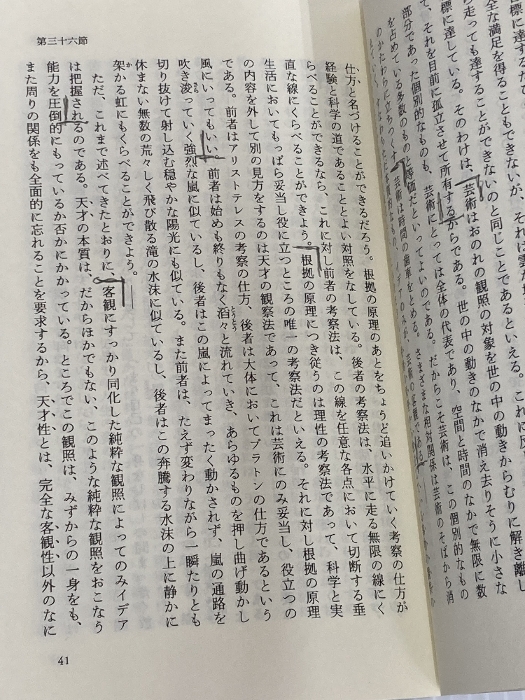 標に達している。そのわけは、芸術はおのれの観照の対象を世の中の動きからむりに解き離し
て、それを目前に孤立させて所有するからである。世の中の動きのなかで消え去りそうに小さな
部分であった個別的なものも、芸術にとっては全体の代表であり、空間と時間のなかで無限に数
を占めている多数のものと等価だといってよいのである。だからこそ芸術は、この個別的なもの
第三十六節
仕方と名づけることができるだろう。根拠の原理のあとをちょうど追いかけていく考察の仕方が
経験と科学の道であることとよい対照をなしている。後者の考察法は、水平に走る無限の線にく
らべることができるなら、これに対し前者の考察法は、この線を任意な各点において切断する垂
直な線にくらべることができよう。根拠の原理につき従うのは理性の考察法であって、科学と実
生活においてもっぱら妥当し役に立つところの唯一の考察法だといえる。それに対し根拠の原理
の内容を外して別の見方をするのは天才の観察法であって、これは芸術にのみ妥当し、役立つの
である。前者はアリストテレスの考察の仕方、後者は大体においてプラトンの仕方であるという
風にいってもいい。前者は始めも終りもなく滔々と流れていき、あらゆるものを押し曲げ動かし
吹き浚っていく強烈な嵐に似ているし、後者はこの嵐によってまったく動かされず、嵐の通路を
切り抜けて射し込む穏やかな陽光にも似ている。また前者は、たえず変わりながら一瞬たりとも
休まない無数の荒々しく飛び散る滝の水沫に似ているし、後者はこの奔騰する水沫の上に静かに
架かる虹にもくらべることができよう。
ただ、これまで述べてきたとおりに、客観にすっかり同化した純粋な観照によってのみイデア
は把握されるのである。天才の本質は、だからほかでもない、このような純粋な観照をおこなう
能力を圧倒的にもっているか否かにかかっている。ところでこの観照は、みずからの一身をも、
また周りの関係をも全面的に忘れることを要求するから、天才性とは、完全な客観性以外のなに
41